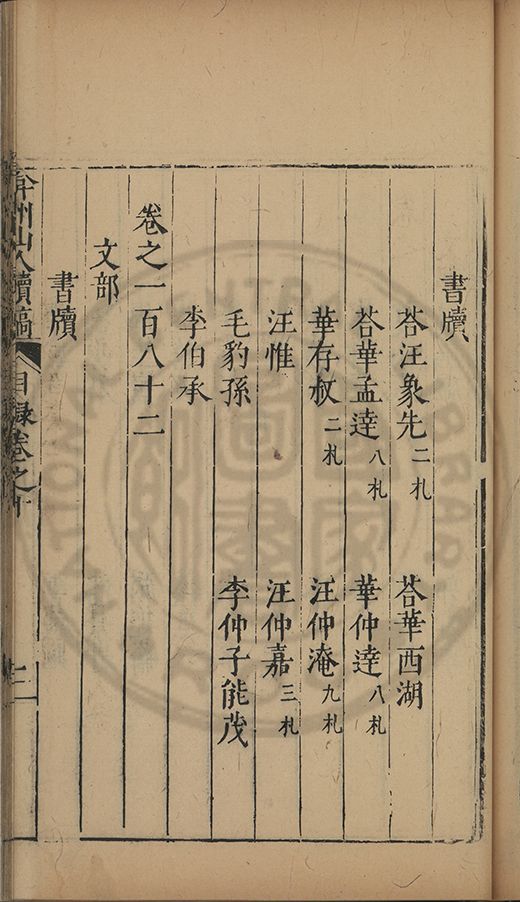 書牘
荅汪象先二札 荅華西湖
荅華孟達八札 華仲達八札
華存叔二札 汪仲淹九札
汪惟 汪仲嘉三札
毛豹孫 李仲子能茂
李伯承
卷之一百八十二
文部
書牘
弇州山人續稿 目録卷之十